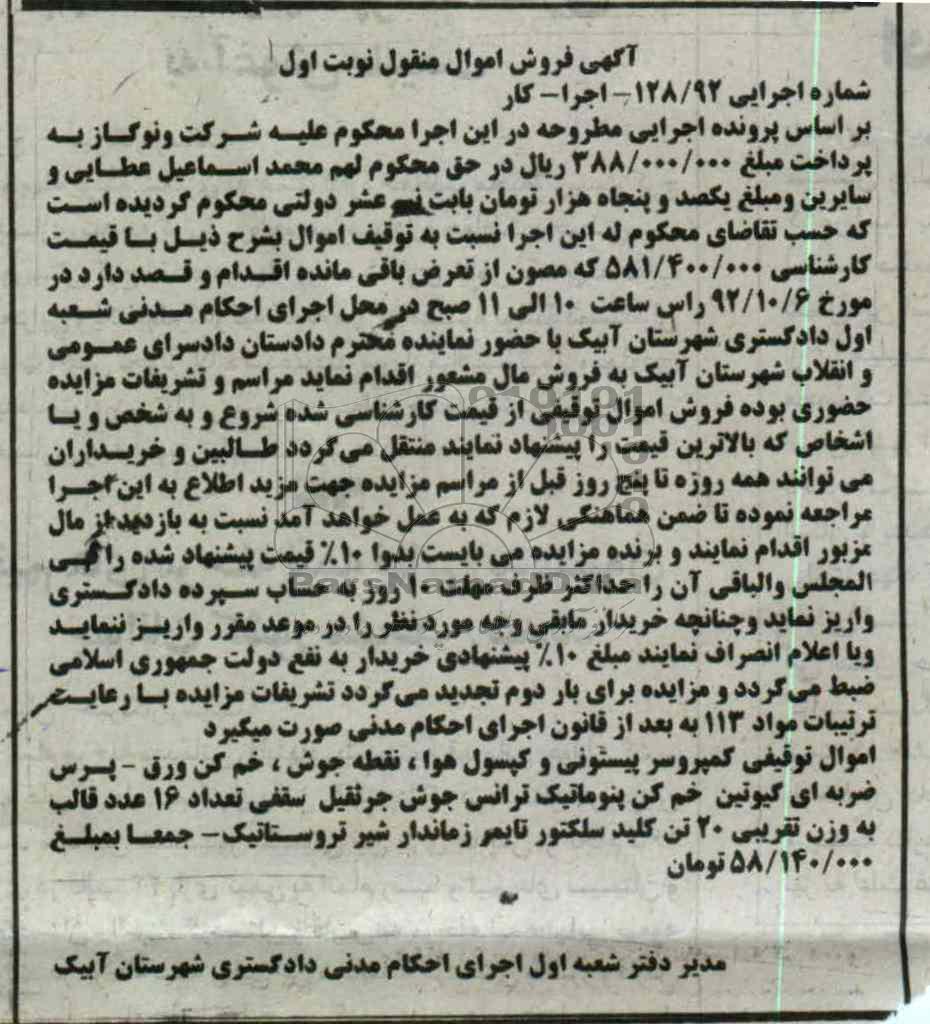 آگهی فروش اموال منقول نوبت اول
شماره اجرایی ۱۲۸/۹۲- اجرا- کار
بر اساس پرونده اجرایی مطروحه در این اجرا محکوم علیه شرکت ونوگاز به
پرداخت مبلغ ۳۸۸/۰۰۰/۰۰۰ ریال در حق محکوم لهم محمد اسماعیل عطایی و
سایرین ومبلغ یکصد و پنجاه هزار تومان بابت عشر دولتی محکوم گردیده است
که حسب تقاضای محکوم له این اجرا نسبت به توقیف اموال بشرح ذیل با قیمت
کارشناسی ۵۸۱/۴۰۰/۰۰۰ که مصون از تعرض باقی مانده اقدام و قصد دارد در
مورخ ۹۲/۱۰/۶ راس ساعت ۱۰ الی ۱۱ صبح در محل اجرای احکام مدنی شعبه
اول دادگستری شهرستان آبیک با حضور نماینده محترم دادستان دادسرای عمومی
و انقلاب شهرستان آبیک به فروش مال مشعور اقدام نماید مراسم و تشریفات مزایده
حضوری بوده فروش اموال توقیفی از قیمت کارشناسی شده شروع و به شخص و یا
اشخاص که بالاترین قیمت را پیشنهاد نمایند منتقل می گردد طالبین و خریداران
می توانند همه روزه تا پنج روز قبل از مراسم مزایده جهت مزید اطلاع به این اجرا
مراجعه نموده تا ضمن هماهنگی لازم که به عمل خواهد آمد نسبت به بازدید از مال
مزبور اقدام نمایند و برنده مزایده می بایست بدوا ۱۰٪ قیمت پیشنهاد شده را فی
المجلس والباقی آن را حداکثر ظرف مهلت ۱۰ روز به حساب سپرده دادگستری
واریز نماید وچنانچه خریدار مابقی وجه مورد نظر را در موعد مقرر واریز ننماید
ویا اعلام انصراف نمایند مبلغ ۱۰٪ پیشنهادی خریدار به نفع دولت جمهوری اسلامی
ضبط می گردد و مزایده برای بار دوم تجدید می گردد تشریفات مزایده با رعایت
ترتیبات مواد ۱۱۳ به بعد از قانون اجرای احکام مدنی صورت میگیرد
اموال توقیفی کمپروسر پیستونی و کپسول هوا ، نقطه جوش ، خم کن ورق - پرس
ضربه ای گیوتین خم کن پنوماتیک ترانس جوش جرثقیل سقفی تعداد ۱۶ عدد قالب
به وزن تقریبی ۲۰ تن کلید سلکتور تایمر زماندار شیر تروستاتیک- جمعا بمبلغ
۵۸/۱۴۰/۰۰۰ تومان
مدیر دفتر شعبه اول اجرای احکام مدنی دادگستری شهرستان آبیک